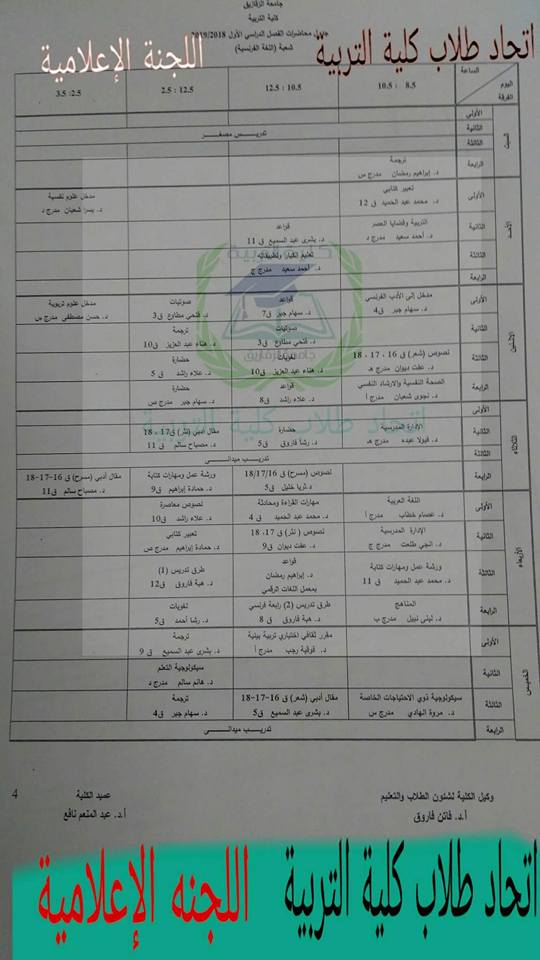 جامعة الزقازيق
كلية التربية
جدول محاضرات الفصل الدراسي الأول 2019/2018
شعبة (اللغة الفرنسية)
اتحاد طلاب كلية التربية
اللجنة الإعلامية
الساعة
اليوم
الفرقة
8.5 : 10.5
10.5 : 12.5
12.5 : 2.5
2.5: 3.5
السبت
الأولى
الثانية
تدريـــس مصغـــر
الثالثة
الرابعة
ترجمة
د. إبراهيم رمضان مدرج س
الأحد
الأولى
تعبير كتابي
د. محمد عبد الحميد ق 12
مدخل علوم نفسية
د. يسرا شعبان مدرج د
الثانية
التربية وقضايا العصر
د. أحمد سعيد مدرج د
قواعد
د. بشرى عبد السميع ق 11
الثالثة
تعليم الكبار وتطبيقاته
د. أحمد سعيد مدرج ج
الرابعة
الاثنين
الأولى
مدخل إلى الأدب الفرنسي
د. سهام جبر ق4
قواعد
د. سهام جبر ق7
صوتيات
د. فتحي مطاوع ق3
مدخل علوم تربوية
د. حسن مصطفي مدرج س
الثانية
صوتيات
د. فتحي مطاوع ق3
ترجمة
د. هناء عبد العزيز ق10
الثالثة
نصوص (شعر) ق 16 ، 17 ، 18
د. عفت ديوان مدرج هـ
لغويات
د. هناء عبد العزيز ق10
حضارة
د. علاء راشد ق5
الرابعة
الصحة النفسية والارشاد النفسي
د. نجوى شعبان مدرج أ
قواعد
د. علاء راشد ق8
حضارة
د. سهام جبر مدرج ص
الثلاثاء
الأولى
الثانية
الإدارة المدرسية
د. فيولا عبده مدرج هـ
حضارة
د. رشا فاروق ق5
مقال أدبي (نثر) ق17 ، 18
د. مصباح سالم ق 11
الثالثة
تدريـــب ميدانـــى
الرابعة
نصوص (مسرح) ق 18/17/16
د. ثريا خليل ق5
ورشة عمل ومهارات كتابة
د. حمادة إبراهيم ق9
مقال أدبي (مسرح) ق 16-17-18
د. مصباح سالم ق11
الأربعاء
الأولى
اللغة العربية
د. عصام خطاب مدرج أ
مهارات القراءة ومحادثة
د. محمد عبد الحميد ق 4
نصوص معاصرة
د. علاء راشد ق10
الثانية
الإدارة المدرسية
د. انجي طلعت مدرج ج
نصوص ( نثر) ق 17، 18
د. عفت ديوان ق9
تعبير كتابي
د. حمادة إبراهيم مدرج ص
الثالثة
ورشة عمل ومهارات كتابة
د. محمد عبد الحميد ق 11
قواعد
د. إبراهيم رمضان
بمعمل اللغات الرقمي
طرق تدريس (1)
د. هبة فاروق ق12
الرابعة
المناهج
د. ليلى نبيل مدرج ب
طرق تدريس (2) رابعة فرنسي
د. هبة فاروق ق 8
لغويات
د. رشا أحمد ق5
الخميس
الأولى
مقرر ثقافي اختياري تربية بيئية
د. فوقية رجب مدرج أ
ترجمة
د. بشرى عبد السميع ق 9
الثانية
سيكولوجية التعلم
د. هانم سالم مدرج د
الثالثة
سيكولوجية ذوي الاحتياجات الخاصة
د. مروة الهادي مدرج س
مقال أدبي (شعر) ق 16-17-18
د. بشرى عبد السميع ق5
ترجمة
د. سهام جبر ق4
الرابعة
تدريـــب ميدانـــي
كلية التربية
جامعة الزقازيق
اتحاد طلاب كلية التربية
وكيل الكلية لشئون الطلاب والتعليم
أ.د. فاتن فاروق
عميد الكلية
أ.د. عبد المنعم نافع
4
اتحاد طلاب كلية التربية
اللجنه الإعلامية